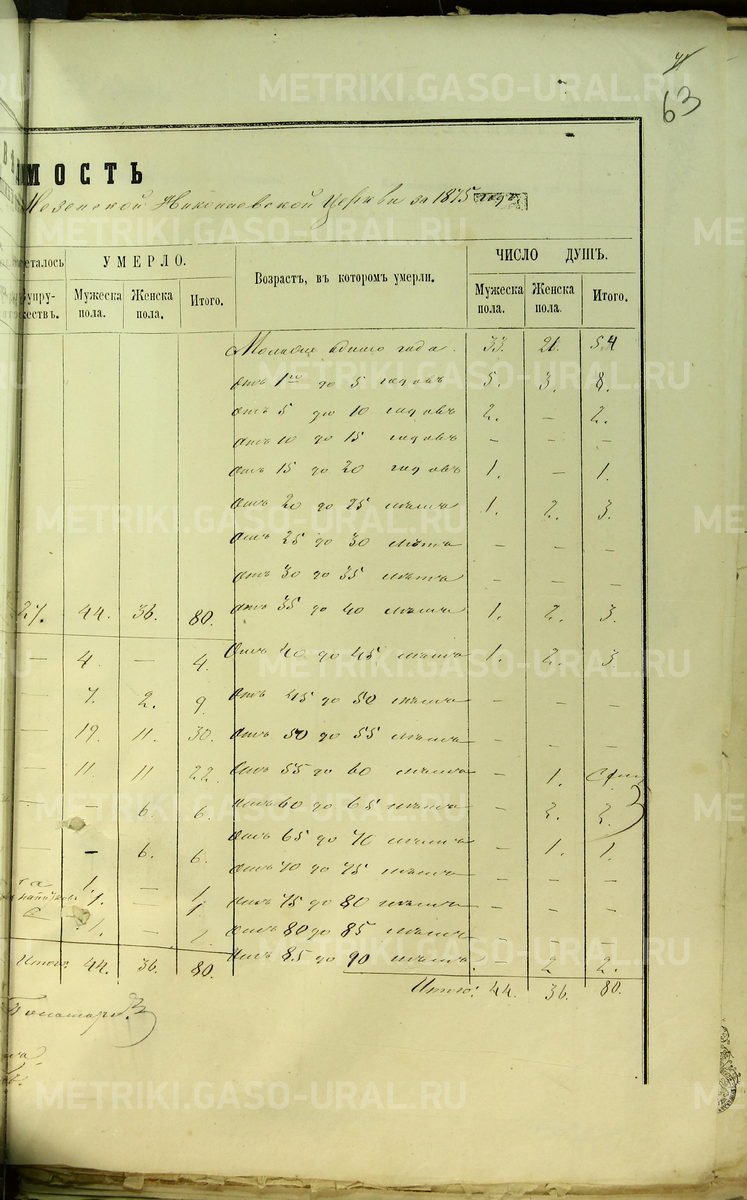 63
МОСТЬ
Николаевской Церкви за 1875 годъ
УМЕРЛО.
Возрастъ, въ которомъ умерли.
ЧИСЛО ДУШЪ.
Мужеска пола. Женска пола. Итого.
Мужеска пола. Женска пола. Итого.
одного года. 33. 21. 54
отъ 1го до 5 годовъ 5. 3. 8.
отъ 5 до 10 годовъ 2. — 2.
отъ 10 до 15 годовъ — — —
отъ 15 до 20 годовъ 1. — 1.
отъ 20 до 25 лѣтъ 1. 2. 3.
отъ 25 до 30 лѣтъ — — —
отъ 30 до 35 лѣтъ — — —
27. 44. 36. 80. отъ 35 до 40 лѣтъ 1. 2. 3.
— 4. — 4. отъ 40 до 45 лѣтъ 1. 2. 3
— 7. 2. 9 отъ 45 до 50 лѣтъ
— 19. 11. 30. отъ 50 до 55 лѣтъ
— 11. 11 22. отъ 55 до 60 лѣтъ — 1.
— — 6. 6. отъ 60 до 65 лѣтъ — 2. 2.
— — 6. 6. отъ 65 до 70 лѣтъ — 1. 1.
отъ 70 до 75 лѣтъ — — —
1. — 1 отъ 75 до 80 лѣтъ — — —
1. — 1 отъ 80 до 85 лѣтъ — — —
Итого: 44. 36. 80. отъ 85 до 90 лѣтъ — 2 2.
Итого: 44. 36. 80.
METRIKI.GASO-URAL.RU